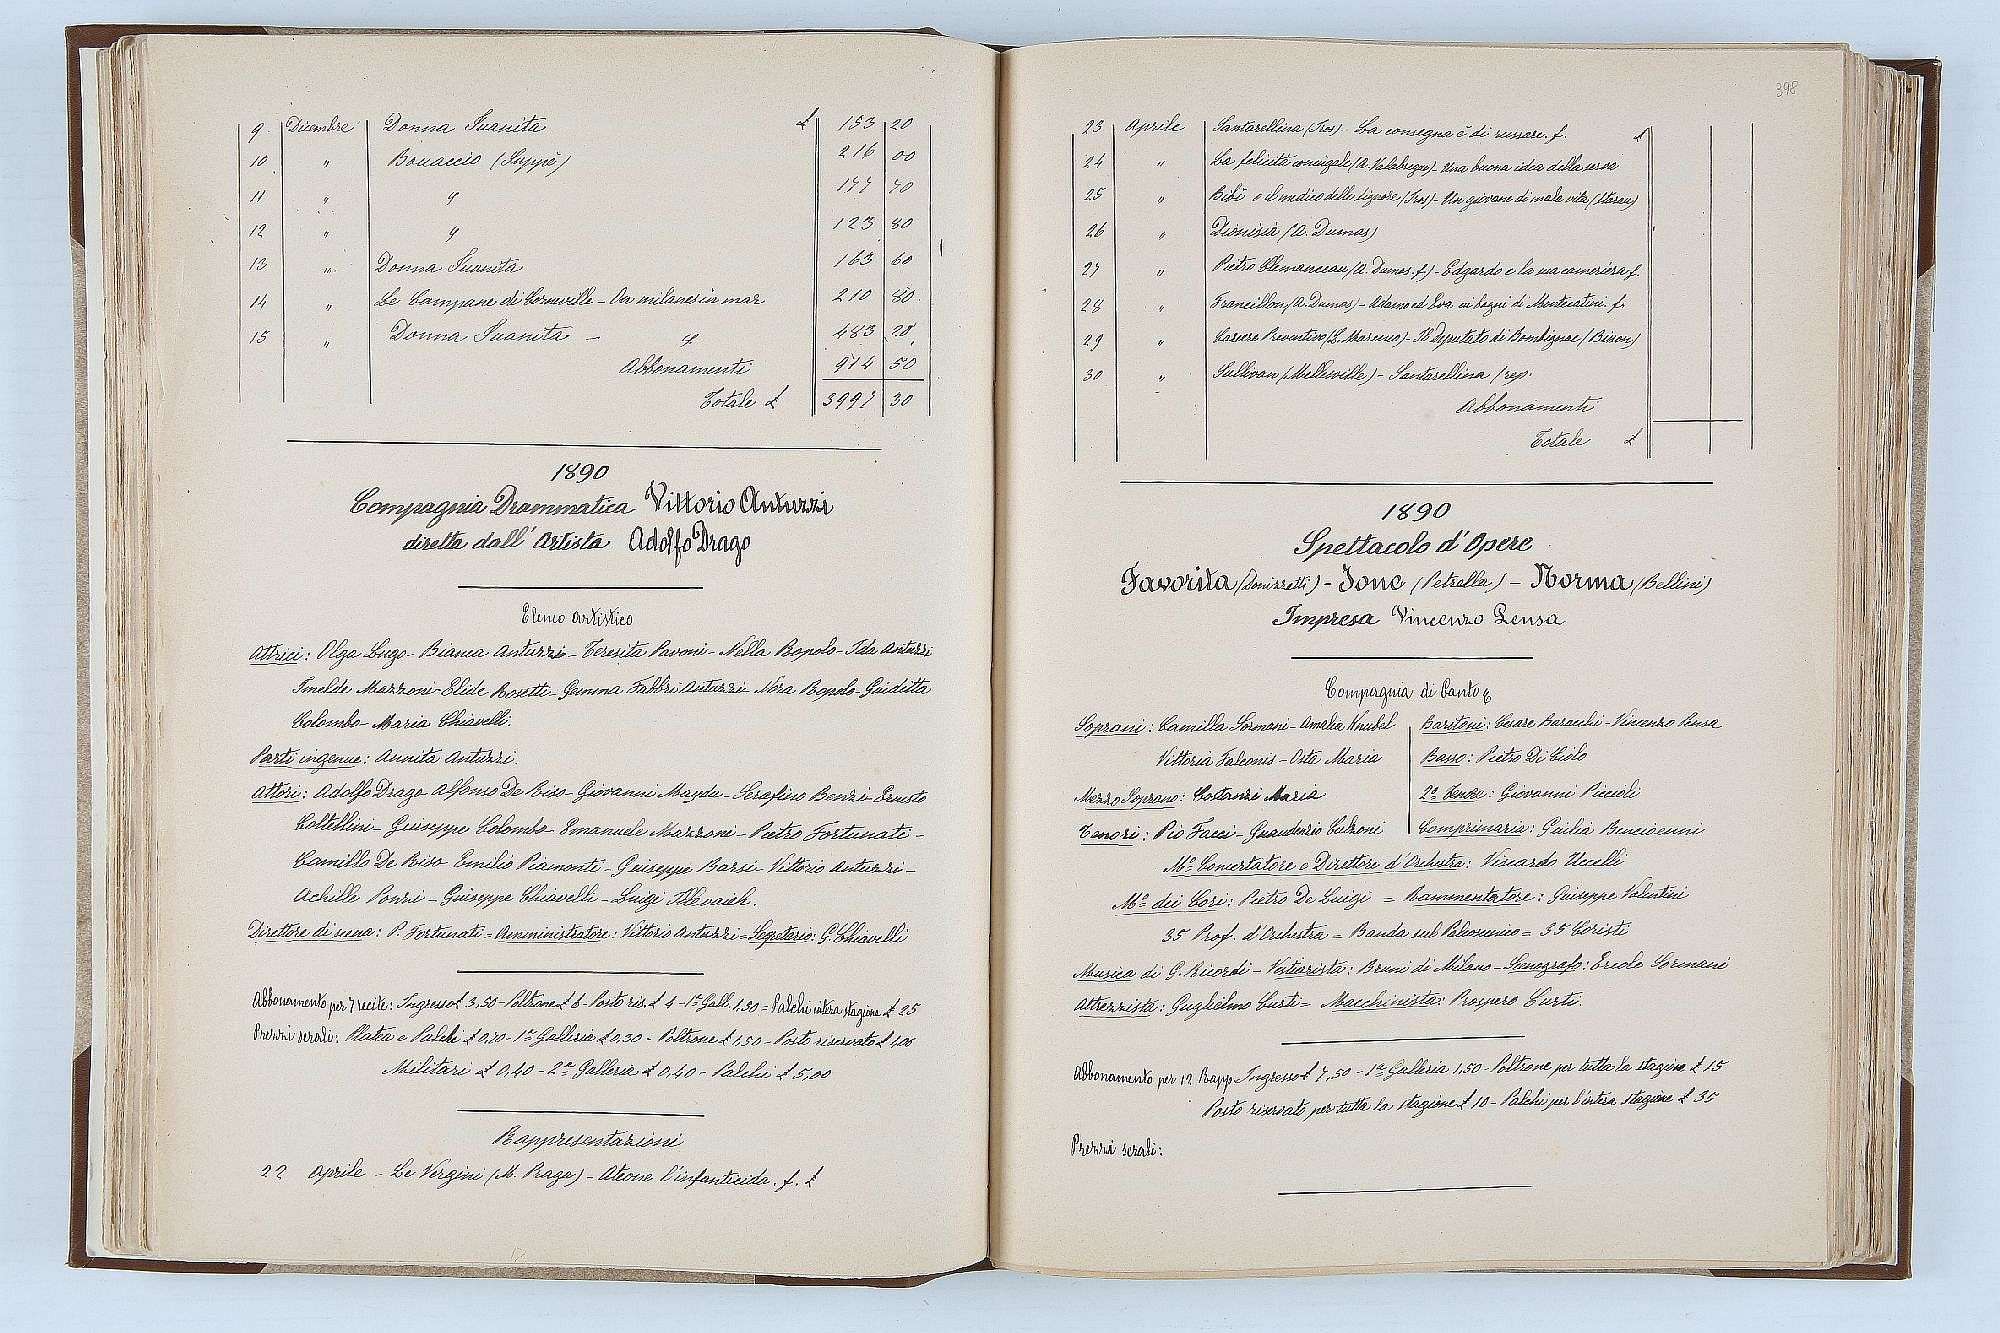 9. Dicembre Donna Juanita £ 153 20
10 " Boccaccio (Suppè) 216 00
11 " " 177 70
12 " " 123 80
13 " Donna Juanita 163 60
14 " Le Campane di Corneville - On milanes in mar 210 80
15 " Donna Juanita - " 483 20
Abbonamenti 914 50
Totale £ 3997 30
1890
Compagnia Drammatica Vittorio Antuzzi
diretta dall' Artista Adolfo Drago
Elenco Artistico
Attrici: Olga Lugo - Bianca Antuzzi - Teresita Pavoni - Nella Bopolo - Ida Antuzzi
Imelde Mazzoni - Elide Rosetti - Gemma Fabbri Antuzzi - Nera Bopolo - Guiditta
Colombo - Maria Chiavelli.
Parti ingenue: Annita Antuzzi.
Attori: Adolfo Drago Alfonso De Biso - Giovanni Magda - Serafino Benzi - Ernesto
Coltellini - Giuseppe Colombo - Emanuele Mazzoni - Pietro Fortunati -
Camillo De Biso Emilio Piamonti - Giuseppe Barsi - Vittorio Antuzzi -
Achille Ponzi - Giuseppe Chiavelli - Luigi
Direttore di scena: P. Fortunati = Amministratore: Vittorio Antuzzi = Segretario: G. Chiavelli
Abbonamento per 7 recite: Ingresso £ 3,50 - Poltrone £ 6 - Posto ris. £ 4 - 1ª Gall. 1,50 = Palchi intera stagione £ 25
Prezzi serali: Platea e Palchi £ 0,70 - 1ª Galleria £ 0,30 - Poltrone £ 1,50 - Posto riservato £ 1,00
Militari £ 0,40 - 2ª Galleria £ 0,40 - Palchi £ 5,00
Rappresentazioni
22 Aprile - Le Vergini (M. Praga) - Ateone l'infanticida. f. £
398
23 Aprile Santarellina (Tres) - La consegna è di russare. f. £
24 " La felicità coniugale (A. Valabregue) - Una buona idea della serva
25 " Bibi o il medico delle signore (Tres) - Un giovane di mala vita
26 " Dionisia (A. Dumas)
27 " Pietro Clemanceau (A. Dumas. f.) - Edgardo e la sua cameriera f.
28 " Francillon (A. Dumas) - Adamo ed Eva ai bagni di Montecatini. f.
29 " Carcere Preventivo (L. Marenco) - Il Deputato di Bombignac (Bisson)
30 " Sullivan (Mellville) - Santarellina (rep.
Abbonamenti
Totale £
1890
Spettacolo d'Opere
Favorita (Donizzetti) - Jone (Petrella) - Norma (Bellini)
Impresa Vincenzo Pensa
Compagnia di Canto
Soprani: Camilla Sormani - Amalia Knubel
Vittoria Falconis - Orta Maria
Mezzo Soprano: Costanzi Maria
Tenori: Pio Facci - Guaudenzio Calzoni
Baritoni: Cesare Baracchi - Vincenzo Pensa
Basso: Pietro Di Ciolo
2º Tenore: Giovanni Piccioli
Comprimaria: Giulia Bencivenni
Mº Concertatore e Direttore d'Orchestra: Viscardo Uccelli
Mº dei Cori: Pietro De Luigi = Rammentatore: Giuseppe Valentini
35 Prof. d'Orchestra = Banda sul Palcoscenico = 35 Coristi
Musica di G. Ricordi - Vestiarista: Bruni di Milano - Scenografo: Ercole Sormani
Attrezzista: Guglielmo Curti = Macchinista: Prospero Curti.
Abbonamento per 12 Rapp. Ingresso £ 7,50 - 1ª Galleria 1,50 - Poltrone per tutta la stagione £ 15
Posto riservato per tutta la stagione £ 10 - Palchi per l'intera stagione £ 35
Prezzi serali: